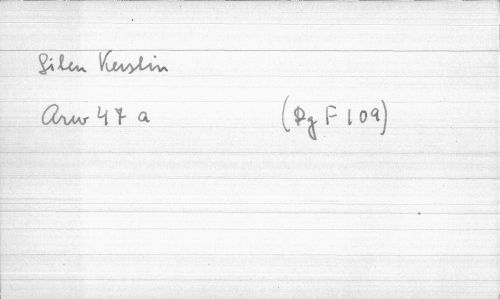 Silen Kerstin
Arw 47 a (Rg F 109)